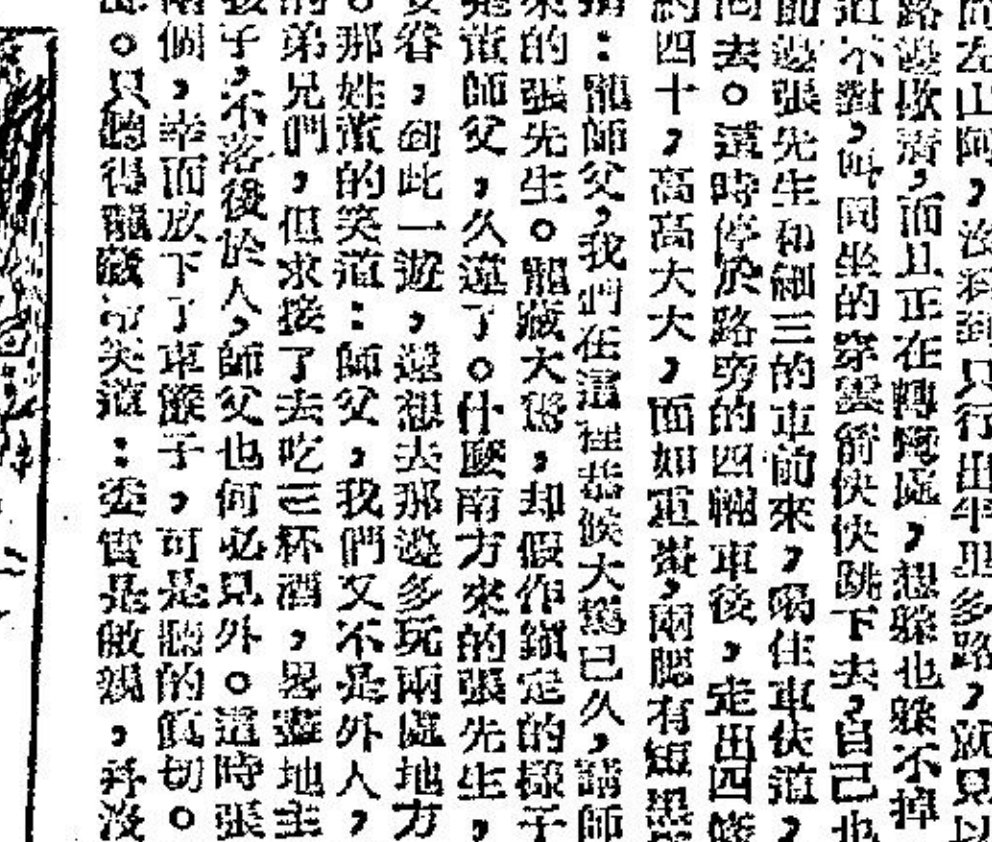 向左山阿，沒料到只行出半里多路，就見以
路邊橄濟，而且正在轉彎處，想躲也躲不掉
道不對，叫同坐的穿雲箭快快跳下去，自己也
前邊張先生和細三的車前來，隔住車伕道，
向去。這時停於路旁的四輛車後，走出四條
約四十，高高大大，面如重棗，兩腮有短黑
：龍師父，我們在這裡恭候大駕已久，請師
來的張先生。龍藏大駕，却假作鎮定的樣子
是董師父，久違了。什麼南方來的張先生，
眷，到此一遊，還想去那邊多玩兩處地方
。那姓董的笑道：師父，我們又不是外人，
的弟兄們，但求接了去吃三杯酒，畧盡地主
孩子，不落後於人，師父也何必見外。這時張
兩個，幸而放下了車簾子，可是聽的真切。
。只聽得龍藏 笑道：委實是敝親，並沒